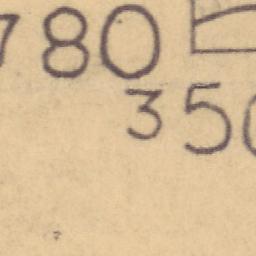 780
350